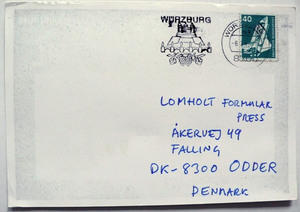 WÜRZBURG
40
LOMHOLT FORMULAR
PRESS
ÅKERVEJ 49
FALLING
DK-8300 ODDER
DENMARK